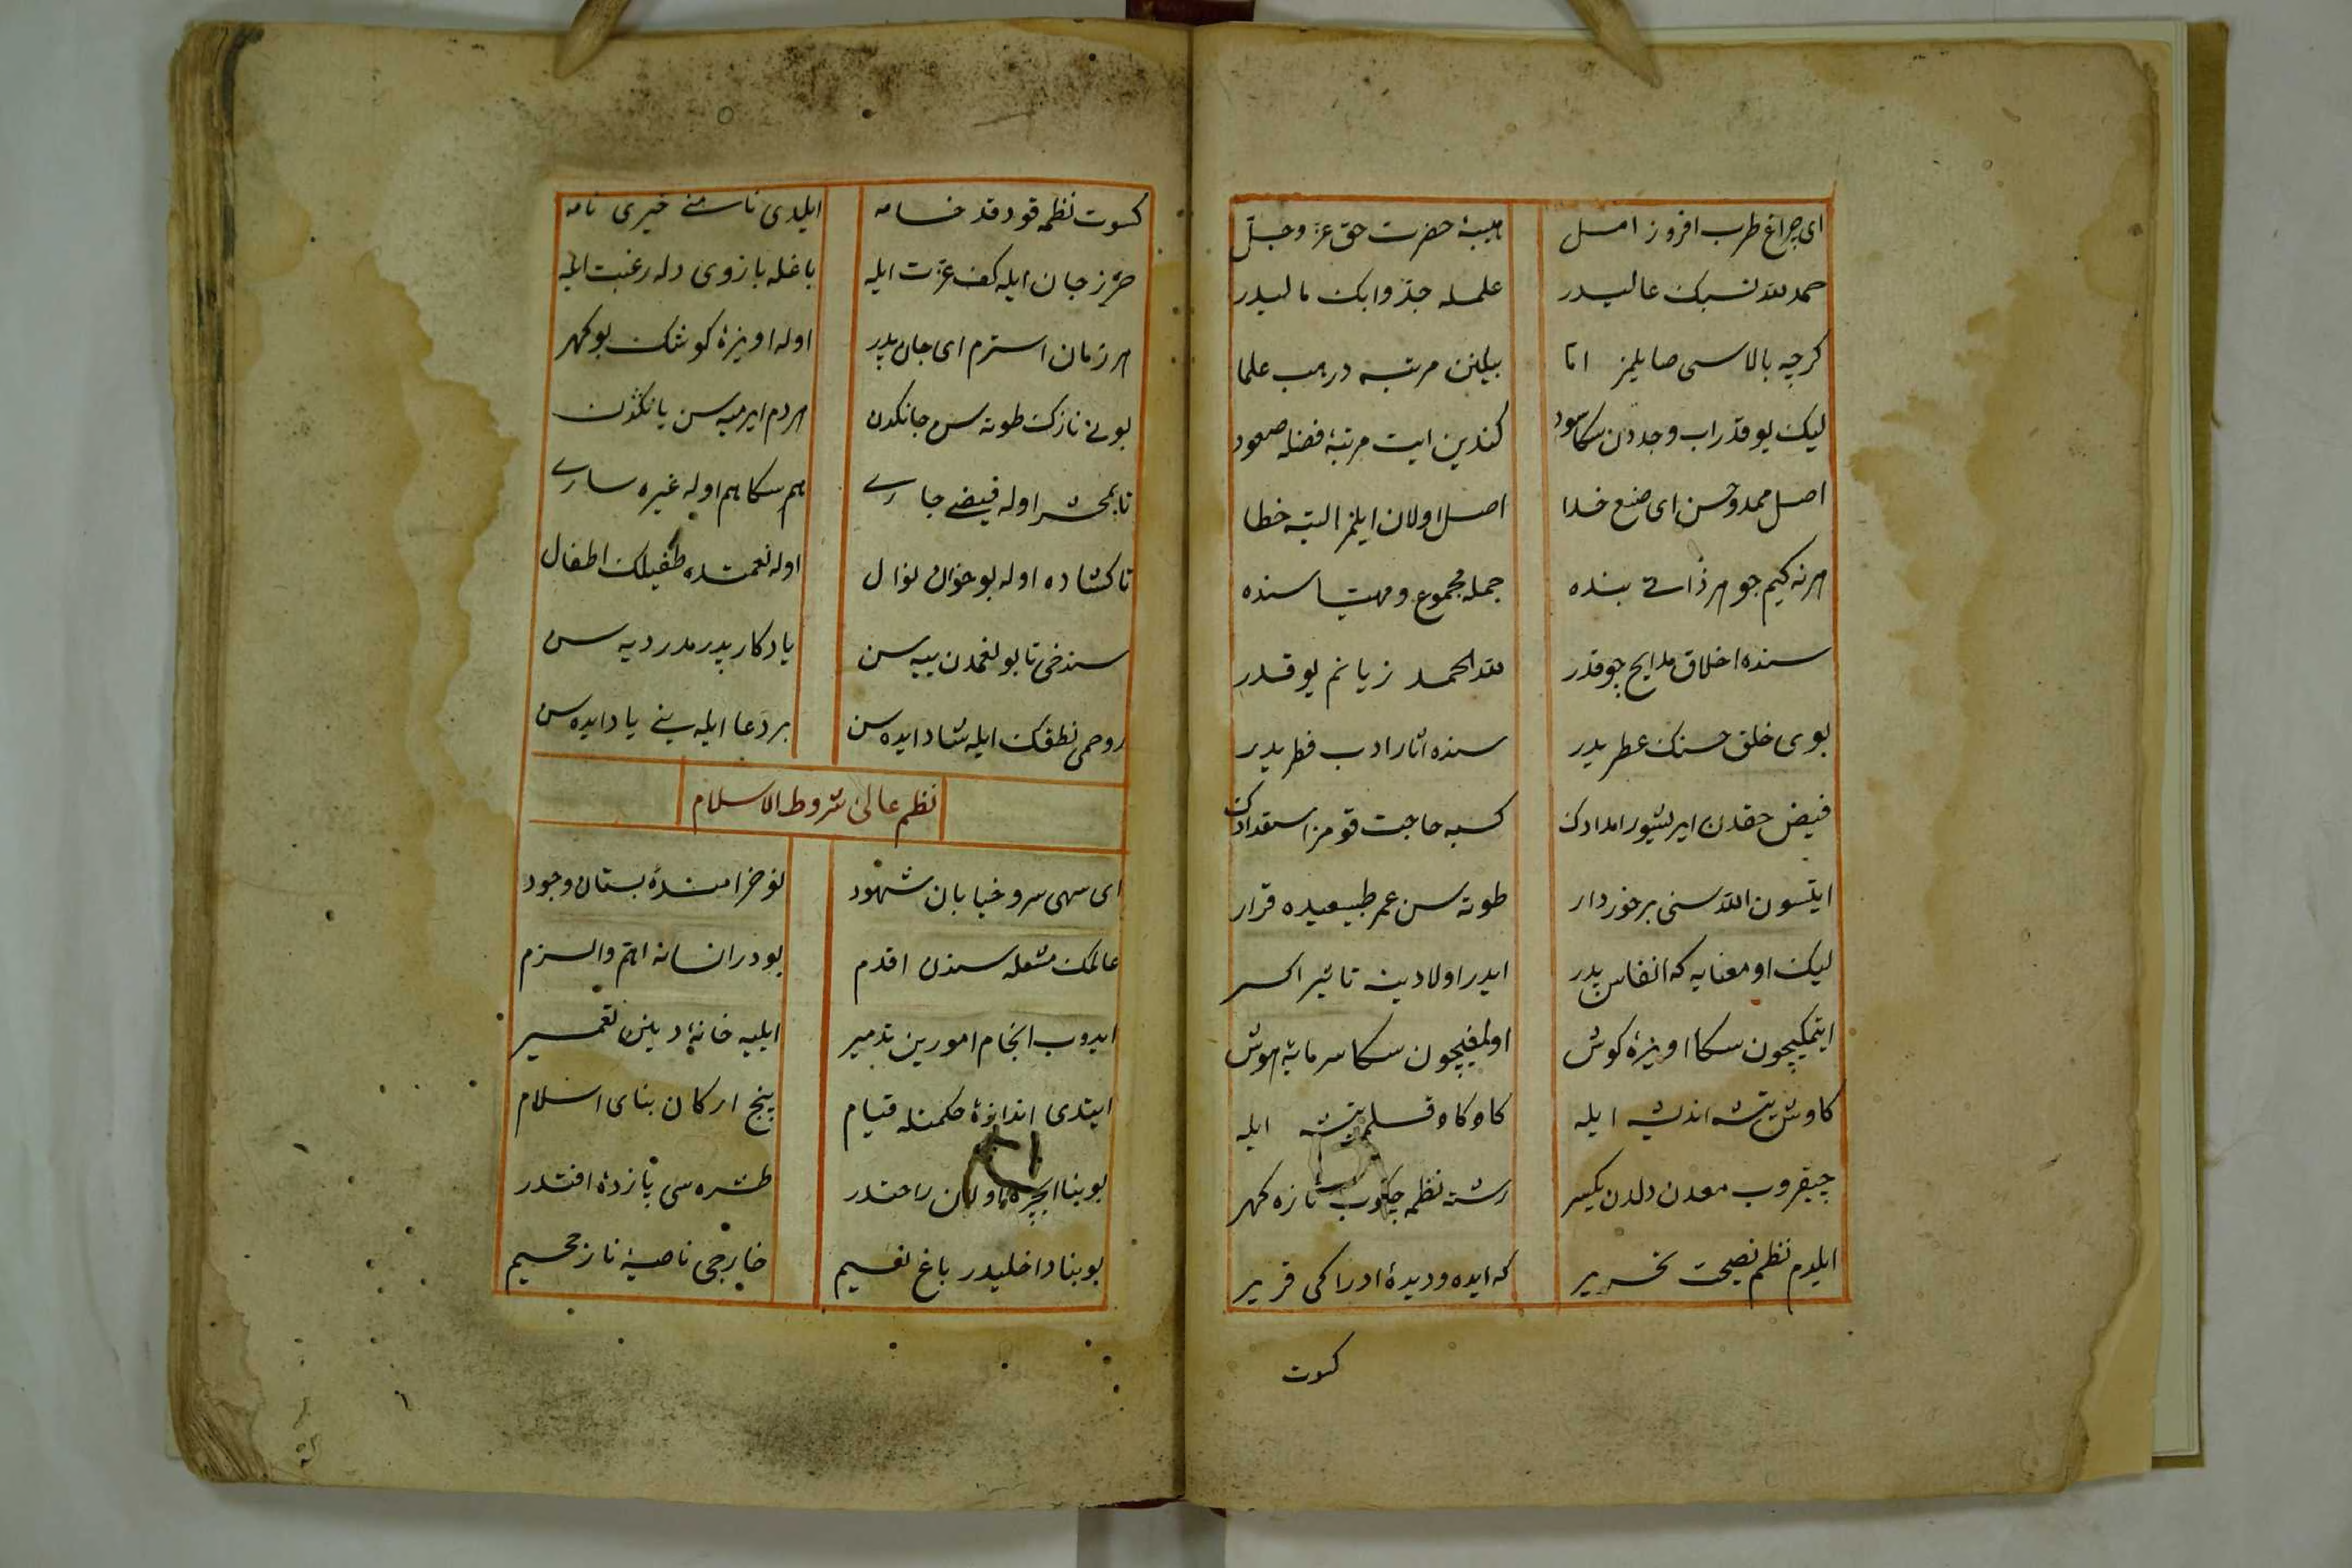 ای چراغ طرب افروز امل هیبهٔ حضرت حق عز وجل
حمد لله نسبک عالیدر علمله جد وابک مالیدر
کرچه بالاسی صایلمز اما بیلنن مرتبه در هب علما
لیک یوقدر اب وجددن سکا سود کندین ایت مرتبهٔ فضله صعود
اصل ممدوحسن ای صنع خدا اصل اولان ایلمز البته خطا
هر نه کیم جوهر ذاتی بنده جمله مجموع ومهیا سنده
سنده اخلاق مدایح جوقدر لله الحمد زیانم یوقدر
بوی خلق حسنک عطریدر سنده اثار ادب فطریدر
فیض حقدن ایریشور امدادک کسبه حاجت قومز استعدادک
ایتسون الله سنی برخوردار طوته سن عمر طبیعیده قرار
لیک او معنایه که انفاس پدر ایدر اولادینه تاثیر اکسر
ایتمکیچون سکا اویزهٔ کوش اولمغیچون سکا سرمایهٔ هوش
کاوش تیشهٔ اندیشه ایله کاو کاو قلم تیشه ایله
چیقروب معدن دلدن یکسر رشتهٔ نظمه چکوب تازه کهر
ایلدم نظم نصیحت تحریر که ایده ودیدهٔ ادراکی قریر
کسوت
کسوت نظمه قودقد خامه ایلدی نامنی خیری نامه
حرز جان ایله کف عزت ایله باغله بازوی دله رغبت ایله
هر زمان استرم ای جان پدر اوله اویزهٔ کوشک بو کهر
بونی نازک طوته سن جانکدن هر دم ایرمیه سن یانکدن
تا بمحشر اوله فیضی جاری هم سکا هم اوله غیره ساری
تا کشاده اوله بو خوان نوال اوله نعمتده طفیلک اطفال
سن دخی تا بو نعمدن ییه سن یادکار پدرمدر دیه سن
روحمی نطقک ایله شاد ایده سن بر دعا ایله بنی یاد ایده سن
نظم عالئ شروط الاسلام
ای سهی سرو خیابان شهود نو خرامندهٔ بستان وجود
عالمک مشعله سندن اقدم بودر انسانه اهم والزم
ایدوب انجام امورین تدمیر ایلیه خانهٔ دینن تعمیر
ایتدی اندازهٔ حکمتله قیام پنج ارکان بنای اسلام
بو بنا ایچره اولان راحتدر طشره سی یازدهٔ افتدر
بو بنا داخلیدر باغ نعیم خارجی ناصیهٔ نار جحیم